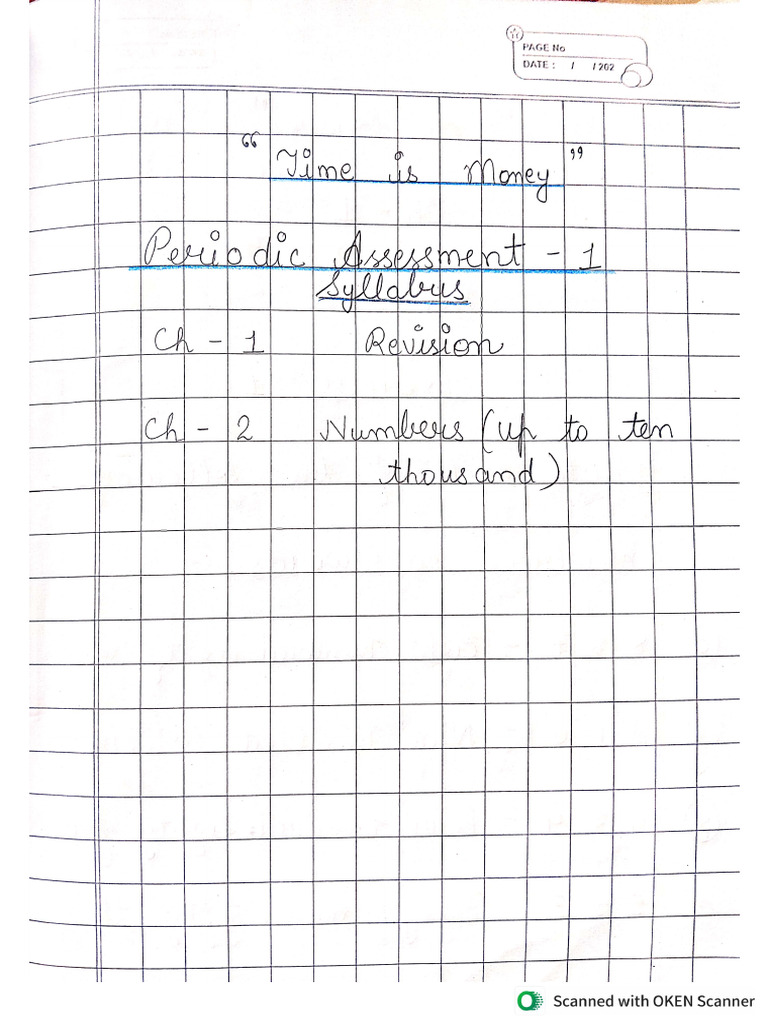 PAGE No
DATE : / /202
“Time is Money”
Periodic Assessment - 1
Syllabus
Ch - 1 Revision
Ch - 2 Numbers (up to ten
thousand)
Scanned with OKEN Scanner